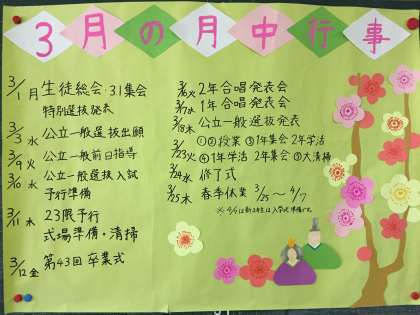 3月の月中行事
3/1月 生徒総会・3.1集会
特別選抜発表
3/3水 公立一般選抜出願
3/9火 公立一般前日指導
3/10水 公立一般選抜入試
予行準備
3/11木 23限予行
式場準備・清掃
3/12金 第43回 卒業式
3/16火 2年合唱発表会
3/17水 1年合唱発表会
3/18木 公立一般選抜発表
3/23火 ①②授業 ③1年集会 2年学活
④1年学活 2年集会 ⑤大清掃
3/24水 修了式
3/25木 春季休業 3/25～4/7